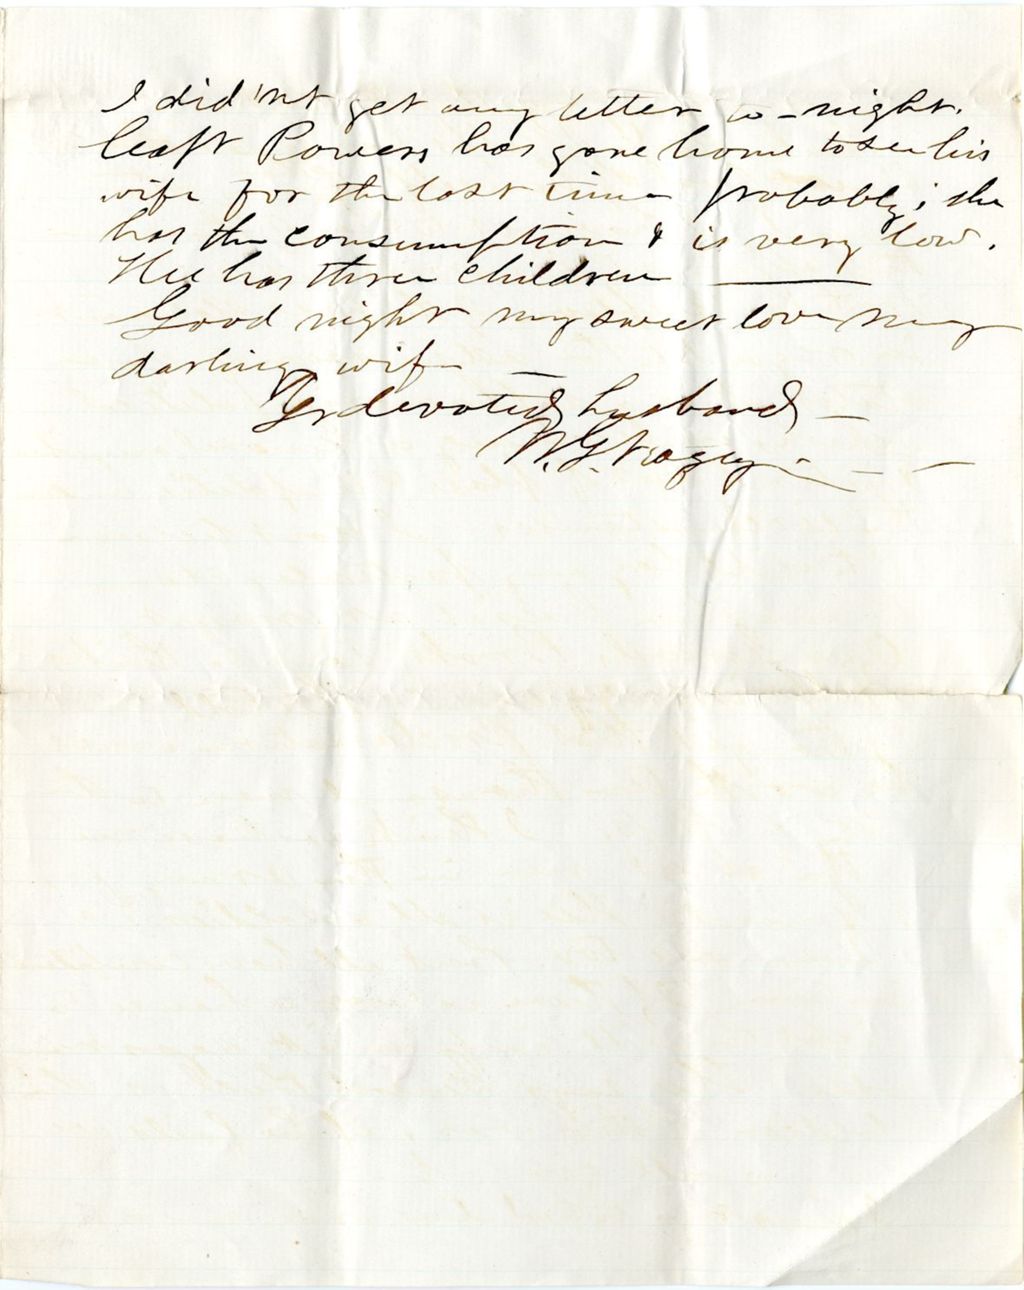 I did'nt get any letter to-night.
Capt Powers has gone home to see his
wife for the last time probably; she
has the consumption & is very low.
He has three children ——
Good night my sweet love my
darling wife —
Yr devoted husband —
W. G.